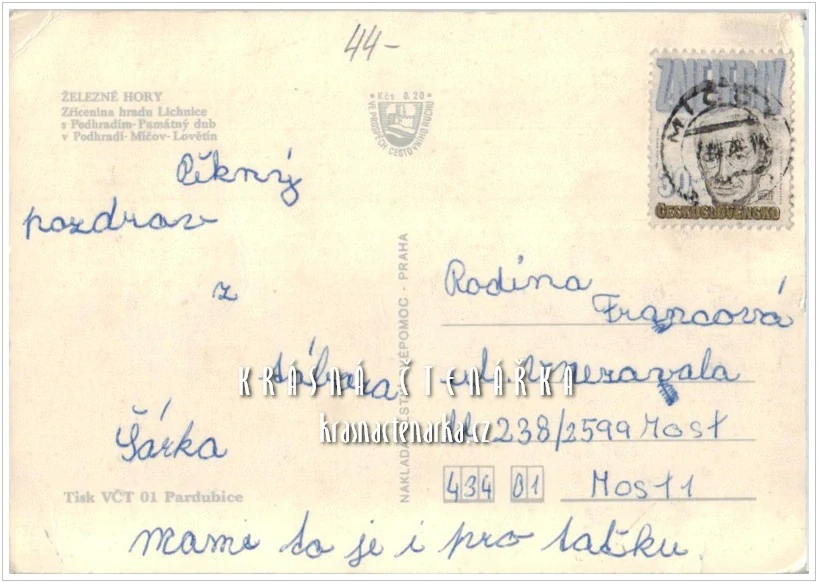 44-
ŽELEZNÉ HORY
Zřícenina hradu Lichnice
s Podhradím-Památný dub
v Podhradí-Míčov-Lovětín
Kčs 0,20
VE PROSPĚCH CESTOVNÍHO RUCHU
ČESKOSLOVENSKO
Pěkný
pozdrav
z
tábora
Šárka
KRÁSNÁ ČTENÁŘKA
krasnactenarka.cz
PRAHA
Rodina
Francová
238/2599 Most
434 01 Most 1
Tisk VČT 01 Pardubice
mami to je i pro taťku